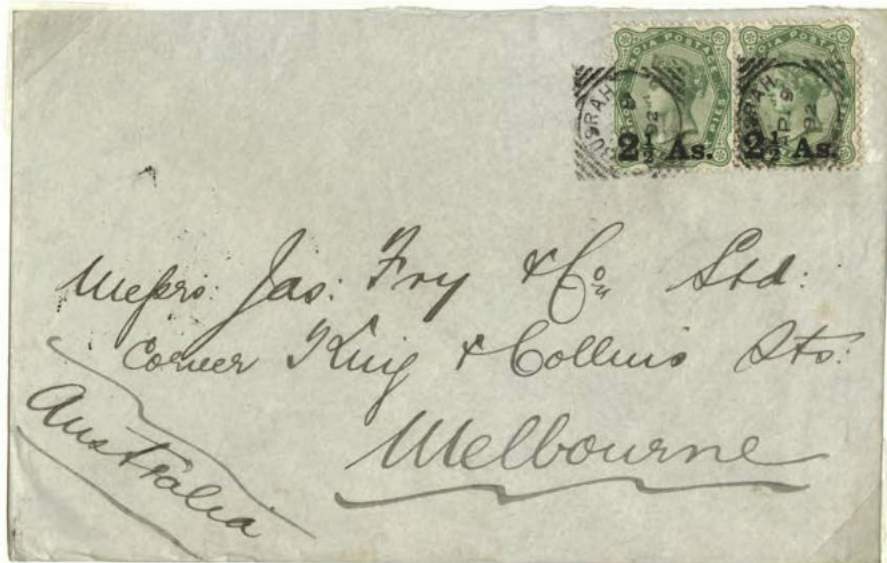 INDIA POSTAGE INDIA POSTAGE
BUSRAH AP 9 92 BUSRAH AP 9 92
2½ As. 2½ As.
Messrs: Jas: Fry & Co Ltd:
Corner King & Collins Sts:
Melbourne
Australia